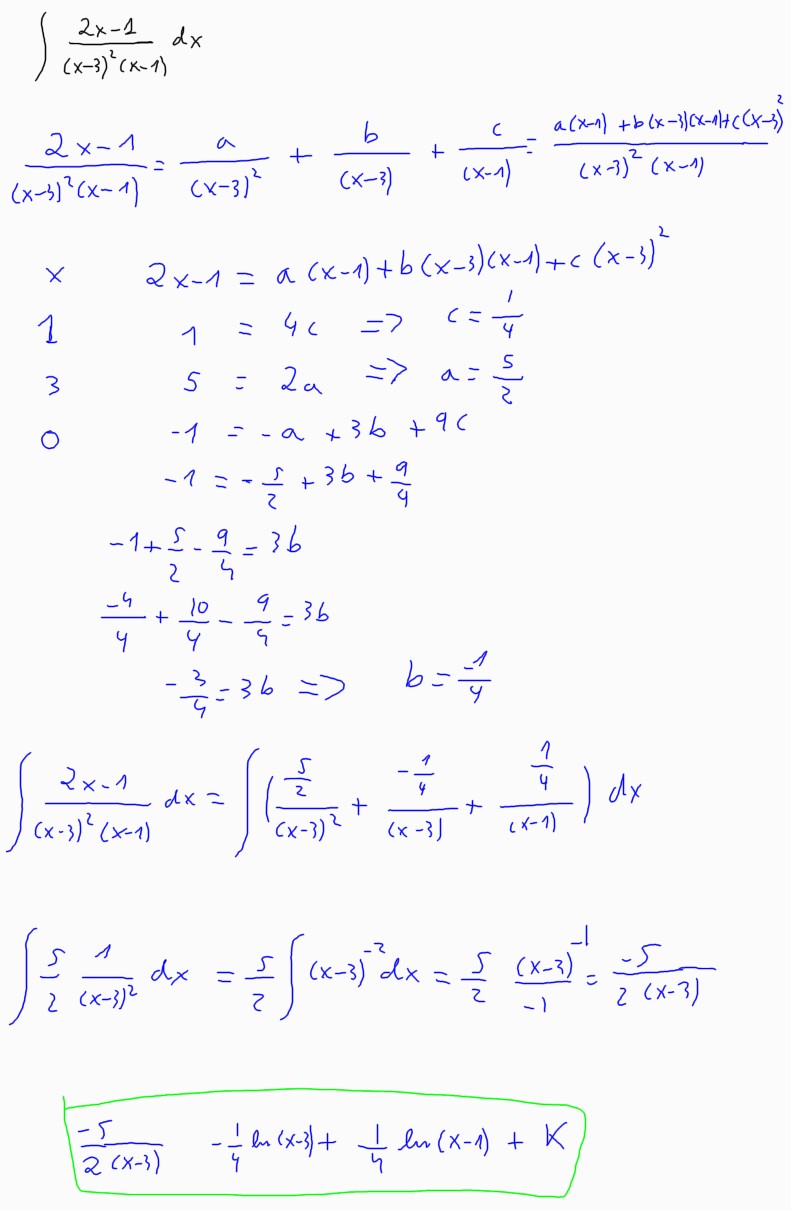 ∫ (2x-1)/((x-3)²(x-1)) dx
(2x-1)/((x-3)²(x-1)) = a/(x-3)² + b/(x-3) + c/(x-1) = (a(x-1)+b(x-3)(x-1)+c(x-3)²)/((x-3)²(x-1))
x 2x-1 = a(x-1)+b(x-3)(x-1)+c(x-3)²
1 1 = 4c => c = 1/4
3 5 = 2a => a = 5/2
0 -1 = -a + 3b + 9c
-1 = -5/2 + 3b + 9/4
-1 + 5/2 - 9/4 = 3b
-4/4 + 10/4 - 9/4 = 3b
-3/4 = 3b => b = -1/4
∫ (2x-1)/((x-3)²(x-1)) dx = ∫ ((5/2)/(x-3)² + (-1/4)/(x-3) + (1/4)/(x-1)) dx
∫ 5/2 1/(x-3)² dx = 5/2 ∫ (x-3)⁻² dx = 5/2 (x-3)⁻¹/-1 = -5/(2(x-3))
-5/(2(x-3)) -1/4 ln(x-3) + 1/4 ln(x-1) + K